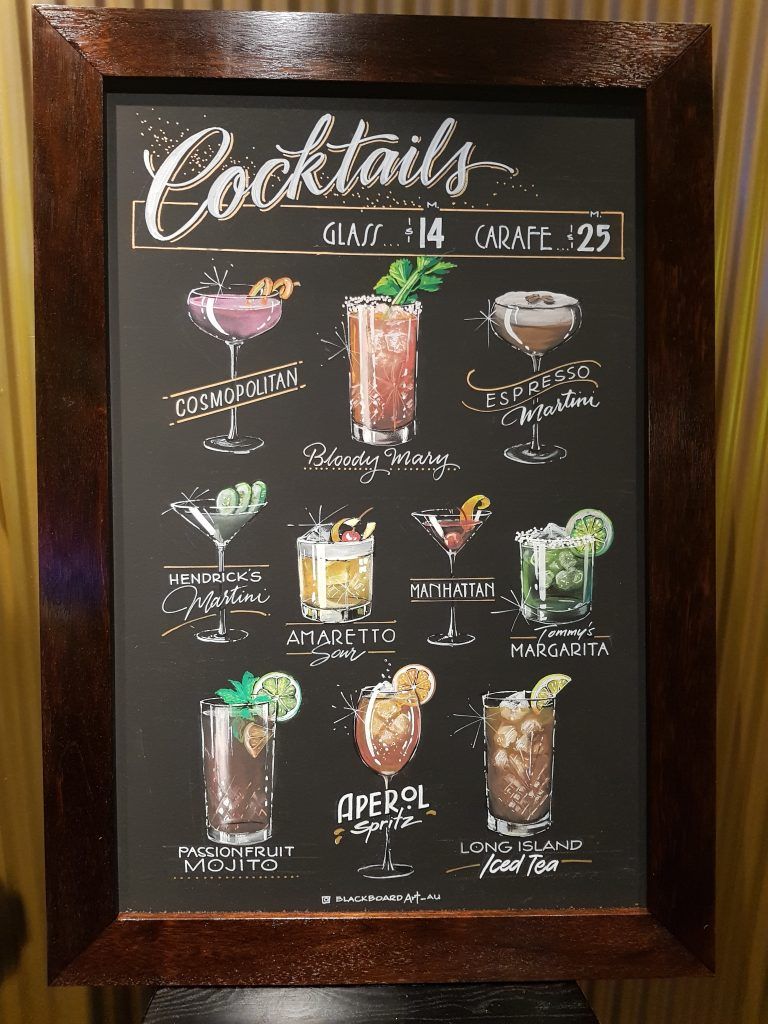 Cocktails
M. M.
GLASS... $14 CARAFE... $25
COSMOPOLITAN
Bloody Mary
ESPRESSO
Martini
HENDRICK'S
Martini
AMARETTO
Sour
MANHATTAN
Tommy's
MARGARITA
PASSIONFRUIT
MOJITO
APEROL
Spritz
LONG ISLAND
Iced Tea
BLACKBOARD Art_AU